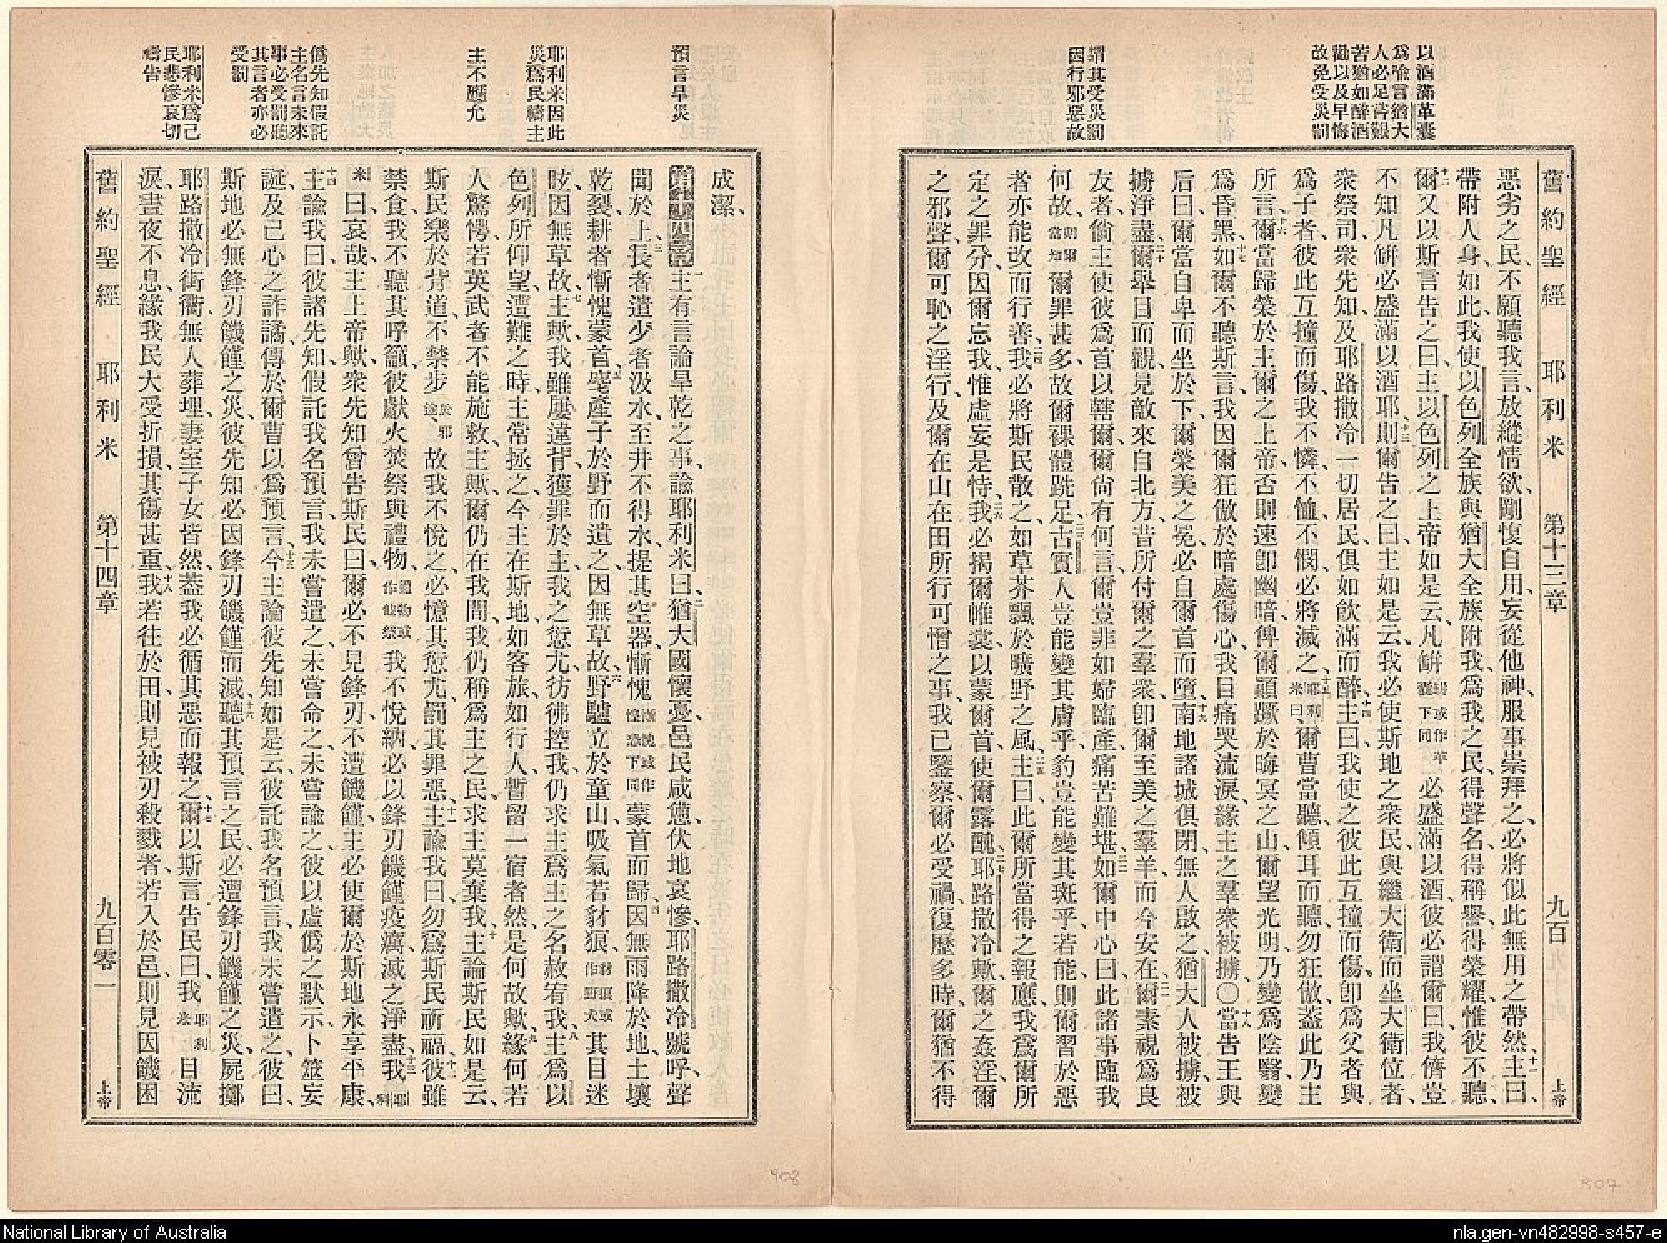 以酒滿革囊
為喻言猶大
人必足苦難
苦猶如醉酒
勸以及早悔
改免受災罰
謂其受災罰
因行邪惡故
舊約聖經 耶利米 第十三章 九百 上帝
惡劣之民、不願聽我言、放縱情欲、剛愎自用、妄從他神、服事崇拜之、必將似此無用之帶然、十一主曰、
帶附人身、如此我使以色列全族與猶大全族附我、為我之民、得聲名、得稱譽、得榮耀、惟彼不聽、
十二爾又以斯言告之曰、主以色列之上帝如是云、凡缾必盛滿以酒、彼必謂爾曰、我儕豈
不知凡缾必盛滿以酒耶、十三則爾告之曰、主如是云、我必使斯地之衆民、與繼大衛而坐大衛位者、
衆祭司、衆先知、及耶路撒冷一切居民、俱如飲滿而醉、十四主曰、我使之彼此互撞而傷、卽為父者與
為子者、彼此互撞而傷、我不憐、不恤、不憫、必將滅之、十五耶利米曰、爾曹當聽、傾耳而聽、勿狂傲、蓋此乃主
所言、十六爾當歸榮於主爾之上帝、否則速卽幽暗、俾爾顚蹶於晦冥之山、爾望光明、乃變為陰翳、變
為昏黑、十七如爾不聽斯言、我因爾狂傲、於暗處傷心、我目痛哭流淚、緣主之羣衆被擄、○十八當告王與
后曰、爾當自卑而坐於下、爾榮美之冕、必自爾首而墮、十九南地諸城俱閉、無人啟之、猶大人被擄、被
擄淨盡、二十爾舉目而觀、見敵來自北方、昔所付爾之羣衆、卽爾至美之羣羊、而今安在、二一爾素視為良
友者、倘主使彼為首以轄爾、爾尙有何言、爾豈非如婦臨產、痛苦難堪、二二如爾中心曰、此諸事臨我
何故、爾罪甚多、故爾裸體跣足、二三古實人豈能變其膚乎、豹豈能變其斑乎、若能、則爾習於惡
者、亦能改而行善、二四我必將斯民散之、如草芥飄於曠野之風、二五主曰、此爾所當得之報應、我為爾所
定之罪分、因爾忘我、惟虛妄是恃、二六我必揭爾帷裳、以蒙爾首、使爾露醜、二七耶路撒冷歟、爾之姦淫、爾
之邪聲、爾可恥之淫行、及爾在山在田所行可憎之事、我已鑒察、爾必受禍、復歷多時、爾猶不得
預言旱災
耶利米因此
災為民禱主
主不應允
僞先知假託
主名言未來
事必受罰聽
其言者亦必
受罰
耶利米為己
民悲慘哀切
禱告
成潔、
第十四章 一主有言論旱乾之事、諭耶利米曰、二猶大國懷憂、邑民咸憊、伏地哀慘、耶路撒冷號呼、聲
聞於上、三長者遣少者汲水、至井不得水、提其空器、慚愧蒙首而歸、四因無雨降於地、土壤
乾裂、耕者慚愧蒙首、五麀產子於野而遺之、因無草故、六野驢立於童山、吸氣若豺狼、其目迷
眩、因無草故、七主歟、我雖屢違背、獲罪於主、我之愆尤彷彿控我、仍求主為主之名赦宥我、八主為以
色列所仰望、遭難之時、主常拯之、今主在斯地、如客旅、如行人暫留一宿者然、是何故歟、九緣何若
人驚愕、若英武者不能施救、主歟、爾仍在我間、我仍稱為主之民、求主莫棄我、十主論斯民如是云、
斯民樂於背道、不禁步於邪途、故我不悅之、必憶其愆尤、罰其罪惡、十一主諭我曰、勿為斯民祈福、十二彼雖
禁食、我不聽其呼籲、彼獻火焚祭與禮物、我不悅納、必以鋒刃饑饉疫癘、滅之淨盡、十三我耶利
米曰、哀哉、主上帝歟、衆先知曾告斯民曰、爾必不見鋒刃、不遭饑饉、主必使爾於斯地永享平康、
十四主諭我曰、彼諸先知假託我名預言、我未嘗遣之、未嘗命之、未嘗諭之、彼以虛僞之默示、卜筮、妄
誕、及己心之詐譎、傳於爾曹、以為預言、十五今主論彼先知如是云、彼託我名預言、我未嘗遣之、彼曰、
斯地必無鋒刃饑饉之災、彼先知必因鋒刃饑饉而滅、十六聽其預言之民、必遭鋒刃饑饉之災、屍擲
耶路撒冷街衢、無人葬埋、妻室子女皆然、蓋我必循其惡而報之、十七爾以斯言告民曰、我耶利米目流
淚、晝夜不息、緣我民大受折損、其傷甚重、十八我若往於田、則見被刃殺戮者、若入於邑、則見因饑困
舊約聖經 耶利米 第十四章 九百零一 上帝
908
907
National Library of Australia
nla.gen-vn482998-s457-e